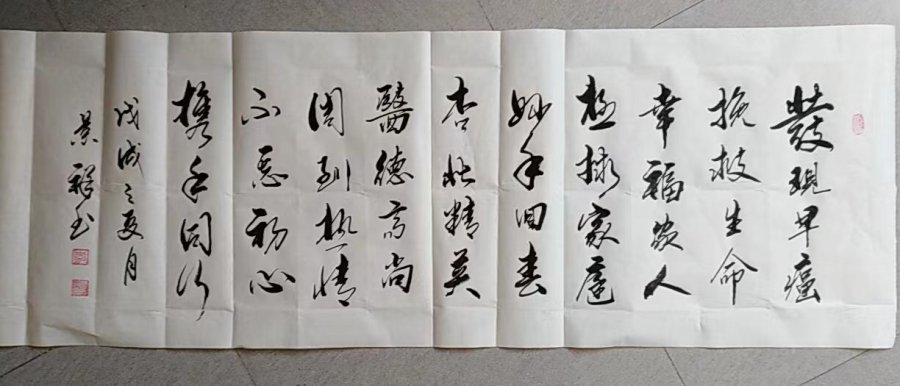 發現早癌
挽救生命
幸福農人
拯捄家庭
妙手回春
杏林精英
醫德高尚
周到热情
不忘初心
携手同行
戊戌之夏月
景祥书